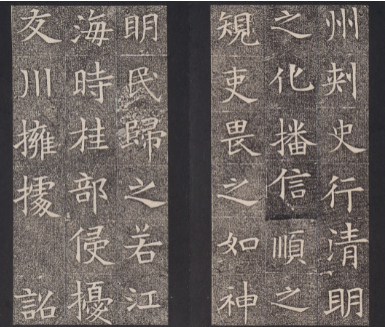 州刾史行清明
之化播信順之
規吏畏之如神
明民歸之若江
海時桂部侵擾
交川擁據 詔